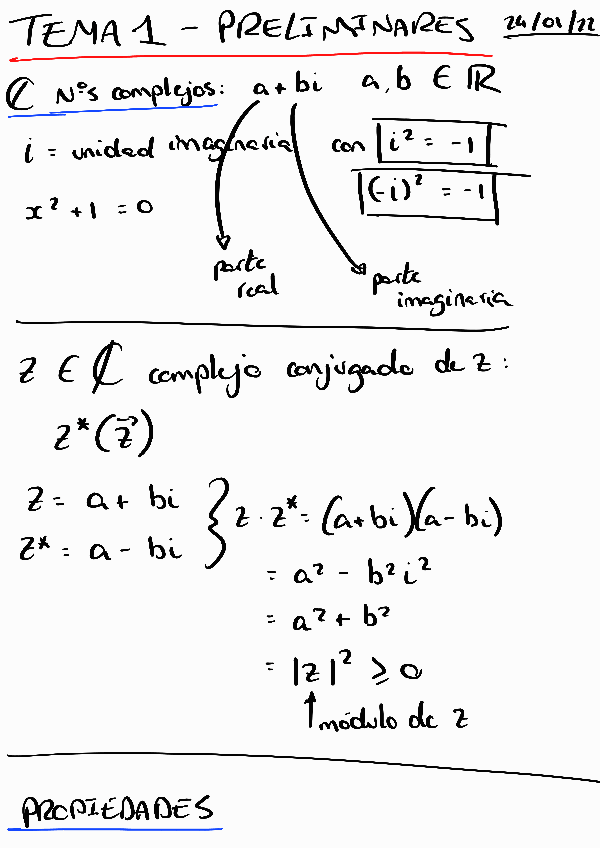 TEMA 1 - PRELIMINARES 24/01/22
ℂ Nºs complejos: a + bi a, b ∈ ℝ
i = unidad imaginaria con i² = -1
(-i)² = -1
x² + 1 = 0
parte real
parte imaginaria
z ∈ ℂ complejo conjugado de z:
z* (z⃗)
z = a + bi
z* = a - bi
z · z* = (a+bi)(a-bi)
= a² - b² i²
= a² + b²
= |z|² ⩾ 0
módulo de z
PROPIEDADES